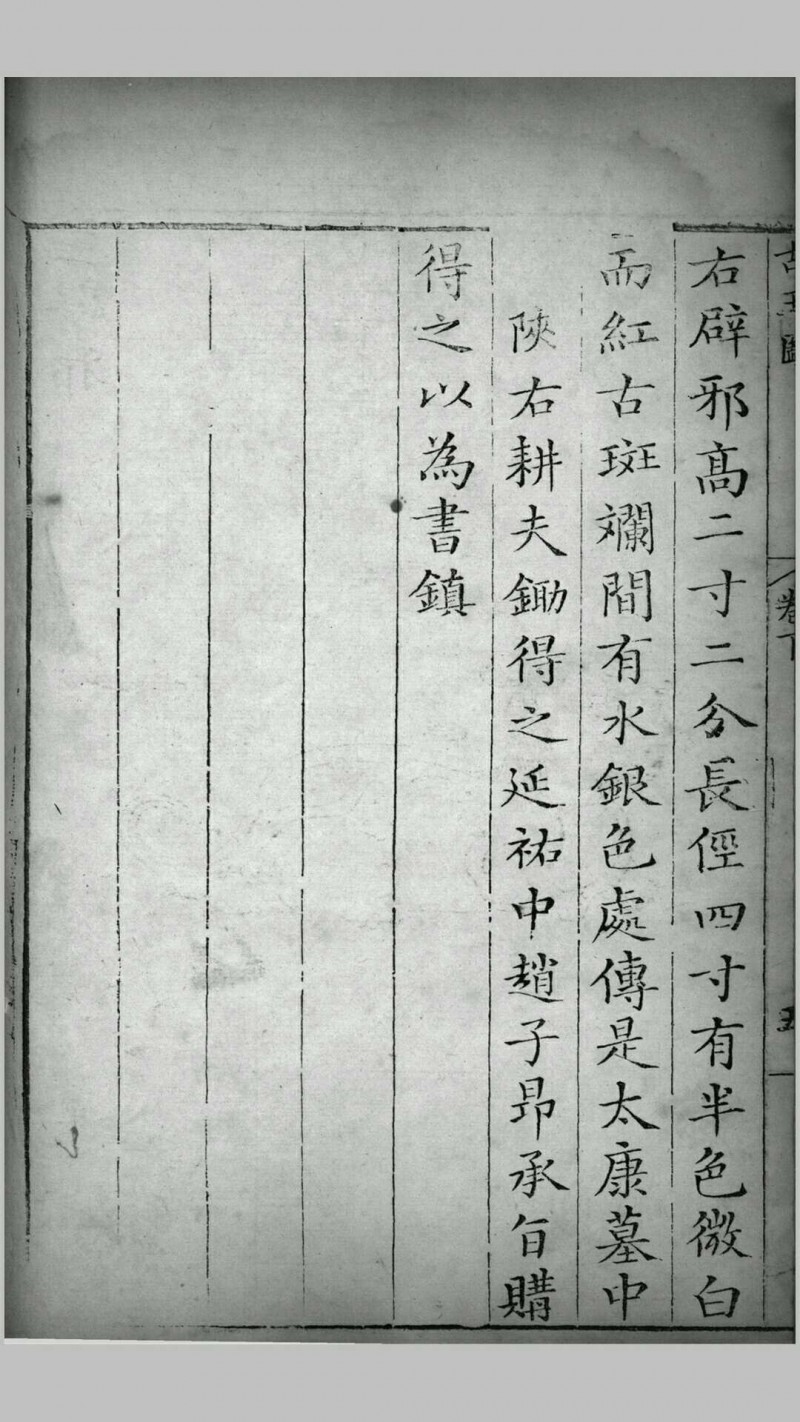 古玉圖
卷下
五
右辟邪高二寸二分長俓四寸有半色微白
而紅古斑斕間有水銀色處傳是太康墓中
陜右耕夫鋤得之延祐中趙子昂承旨購
得之以為書鎮